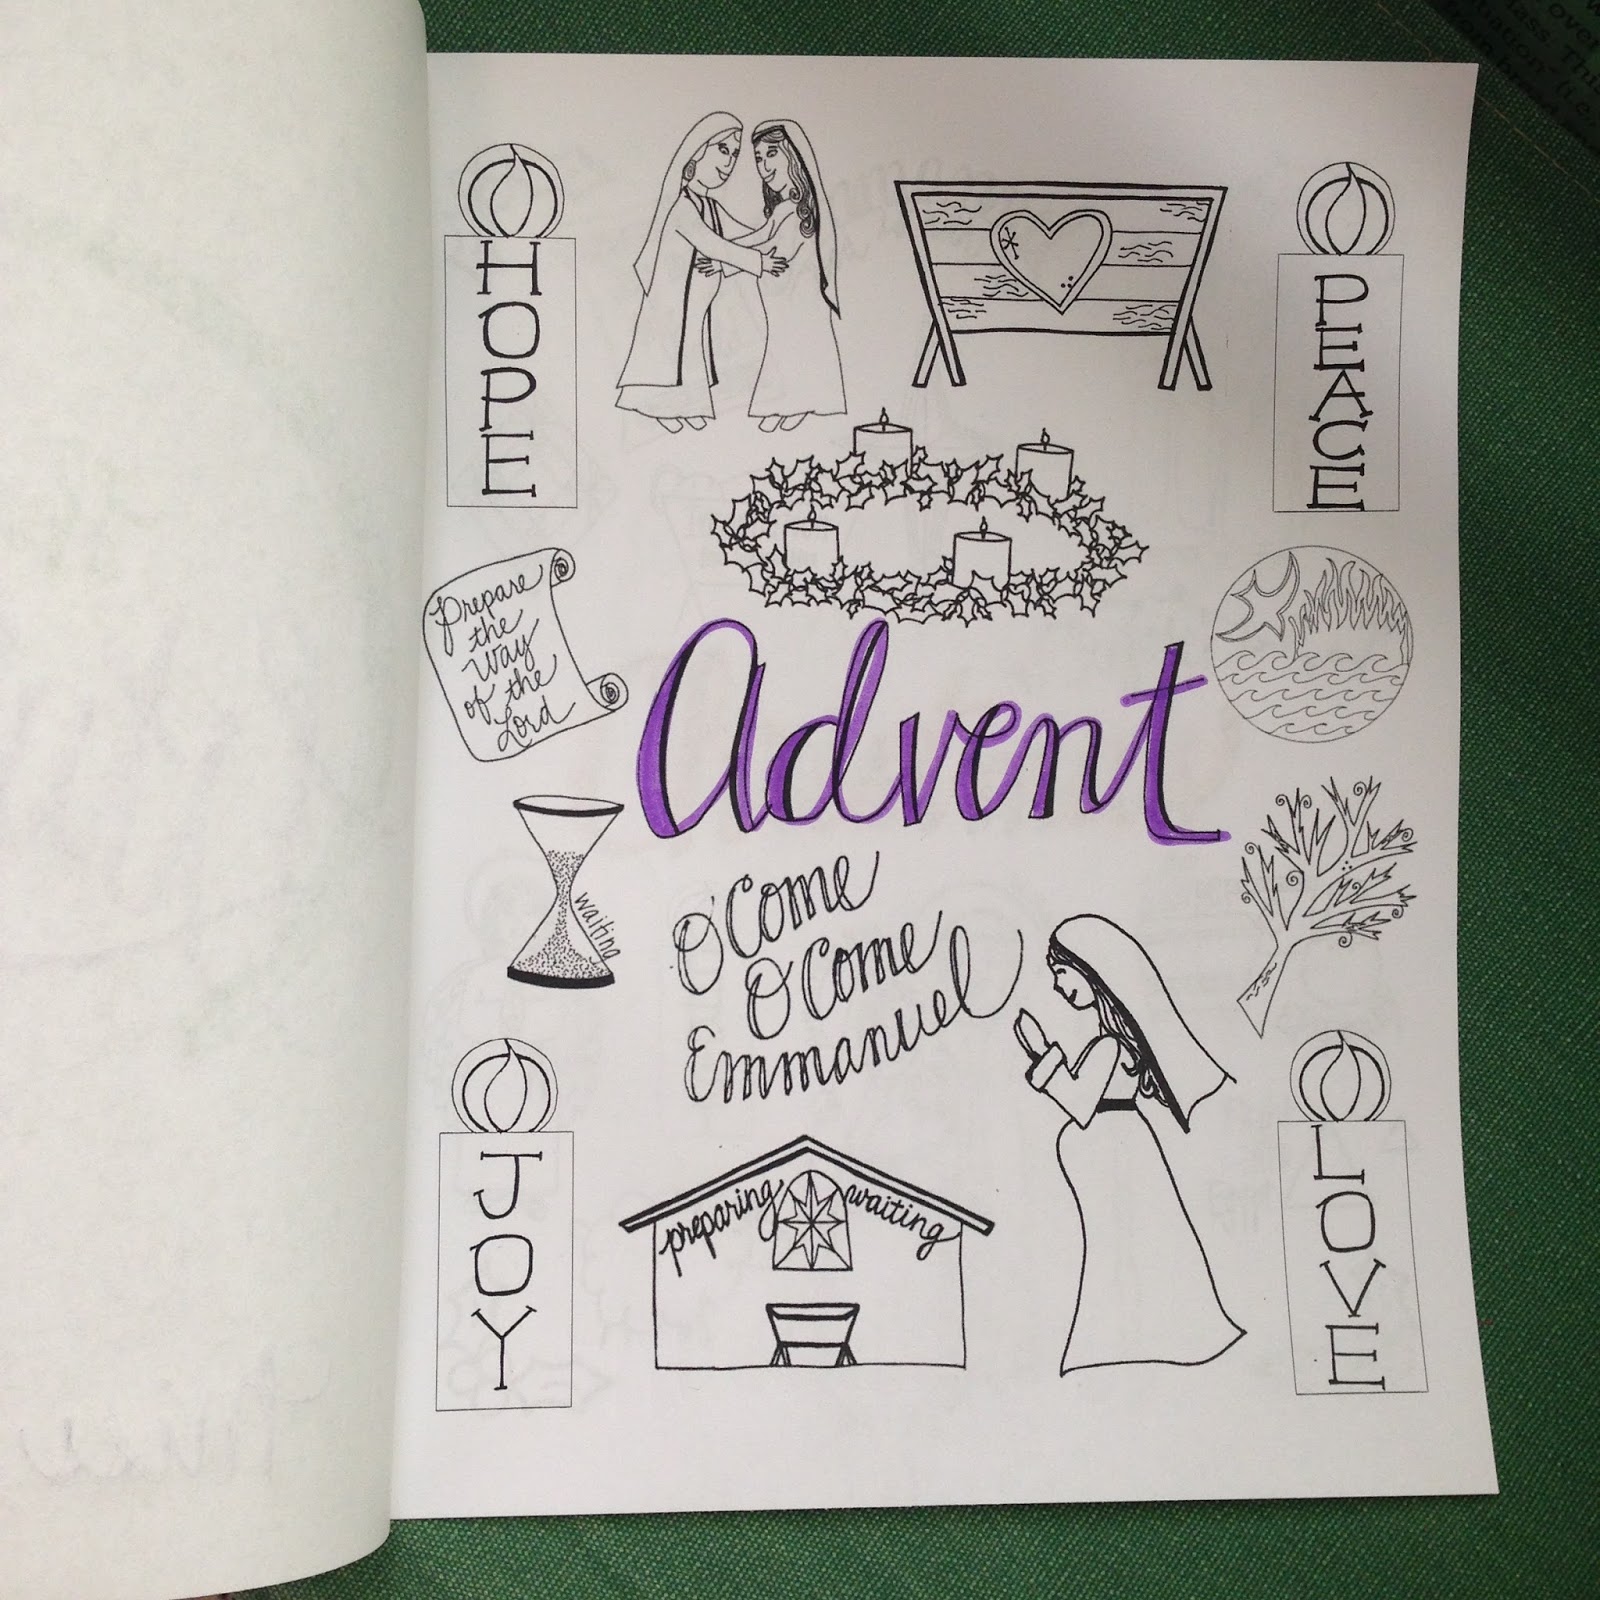 over
lass. Thi
HOPE
PEACE
Prepare
the
way
of the
Lord
Advent
waiting
O' Come
O' Come
Emmanuel
JOY
preparing waiting
LOVE